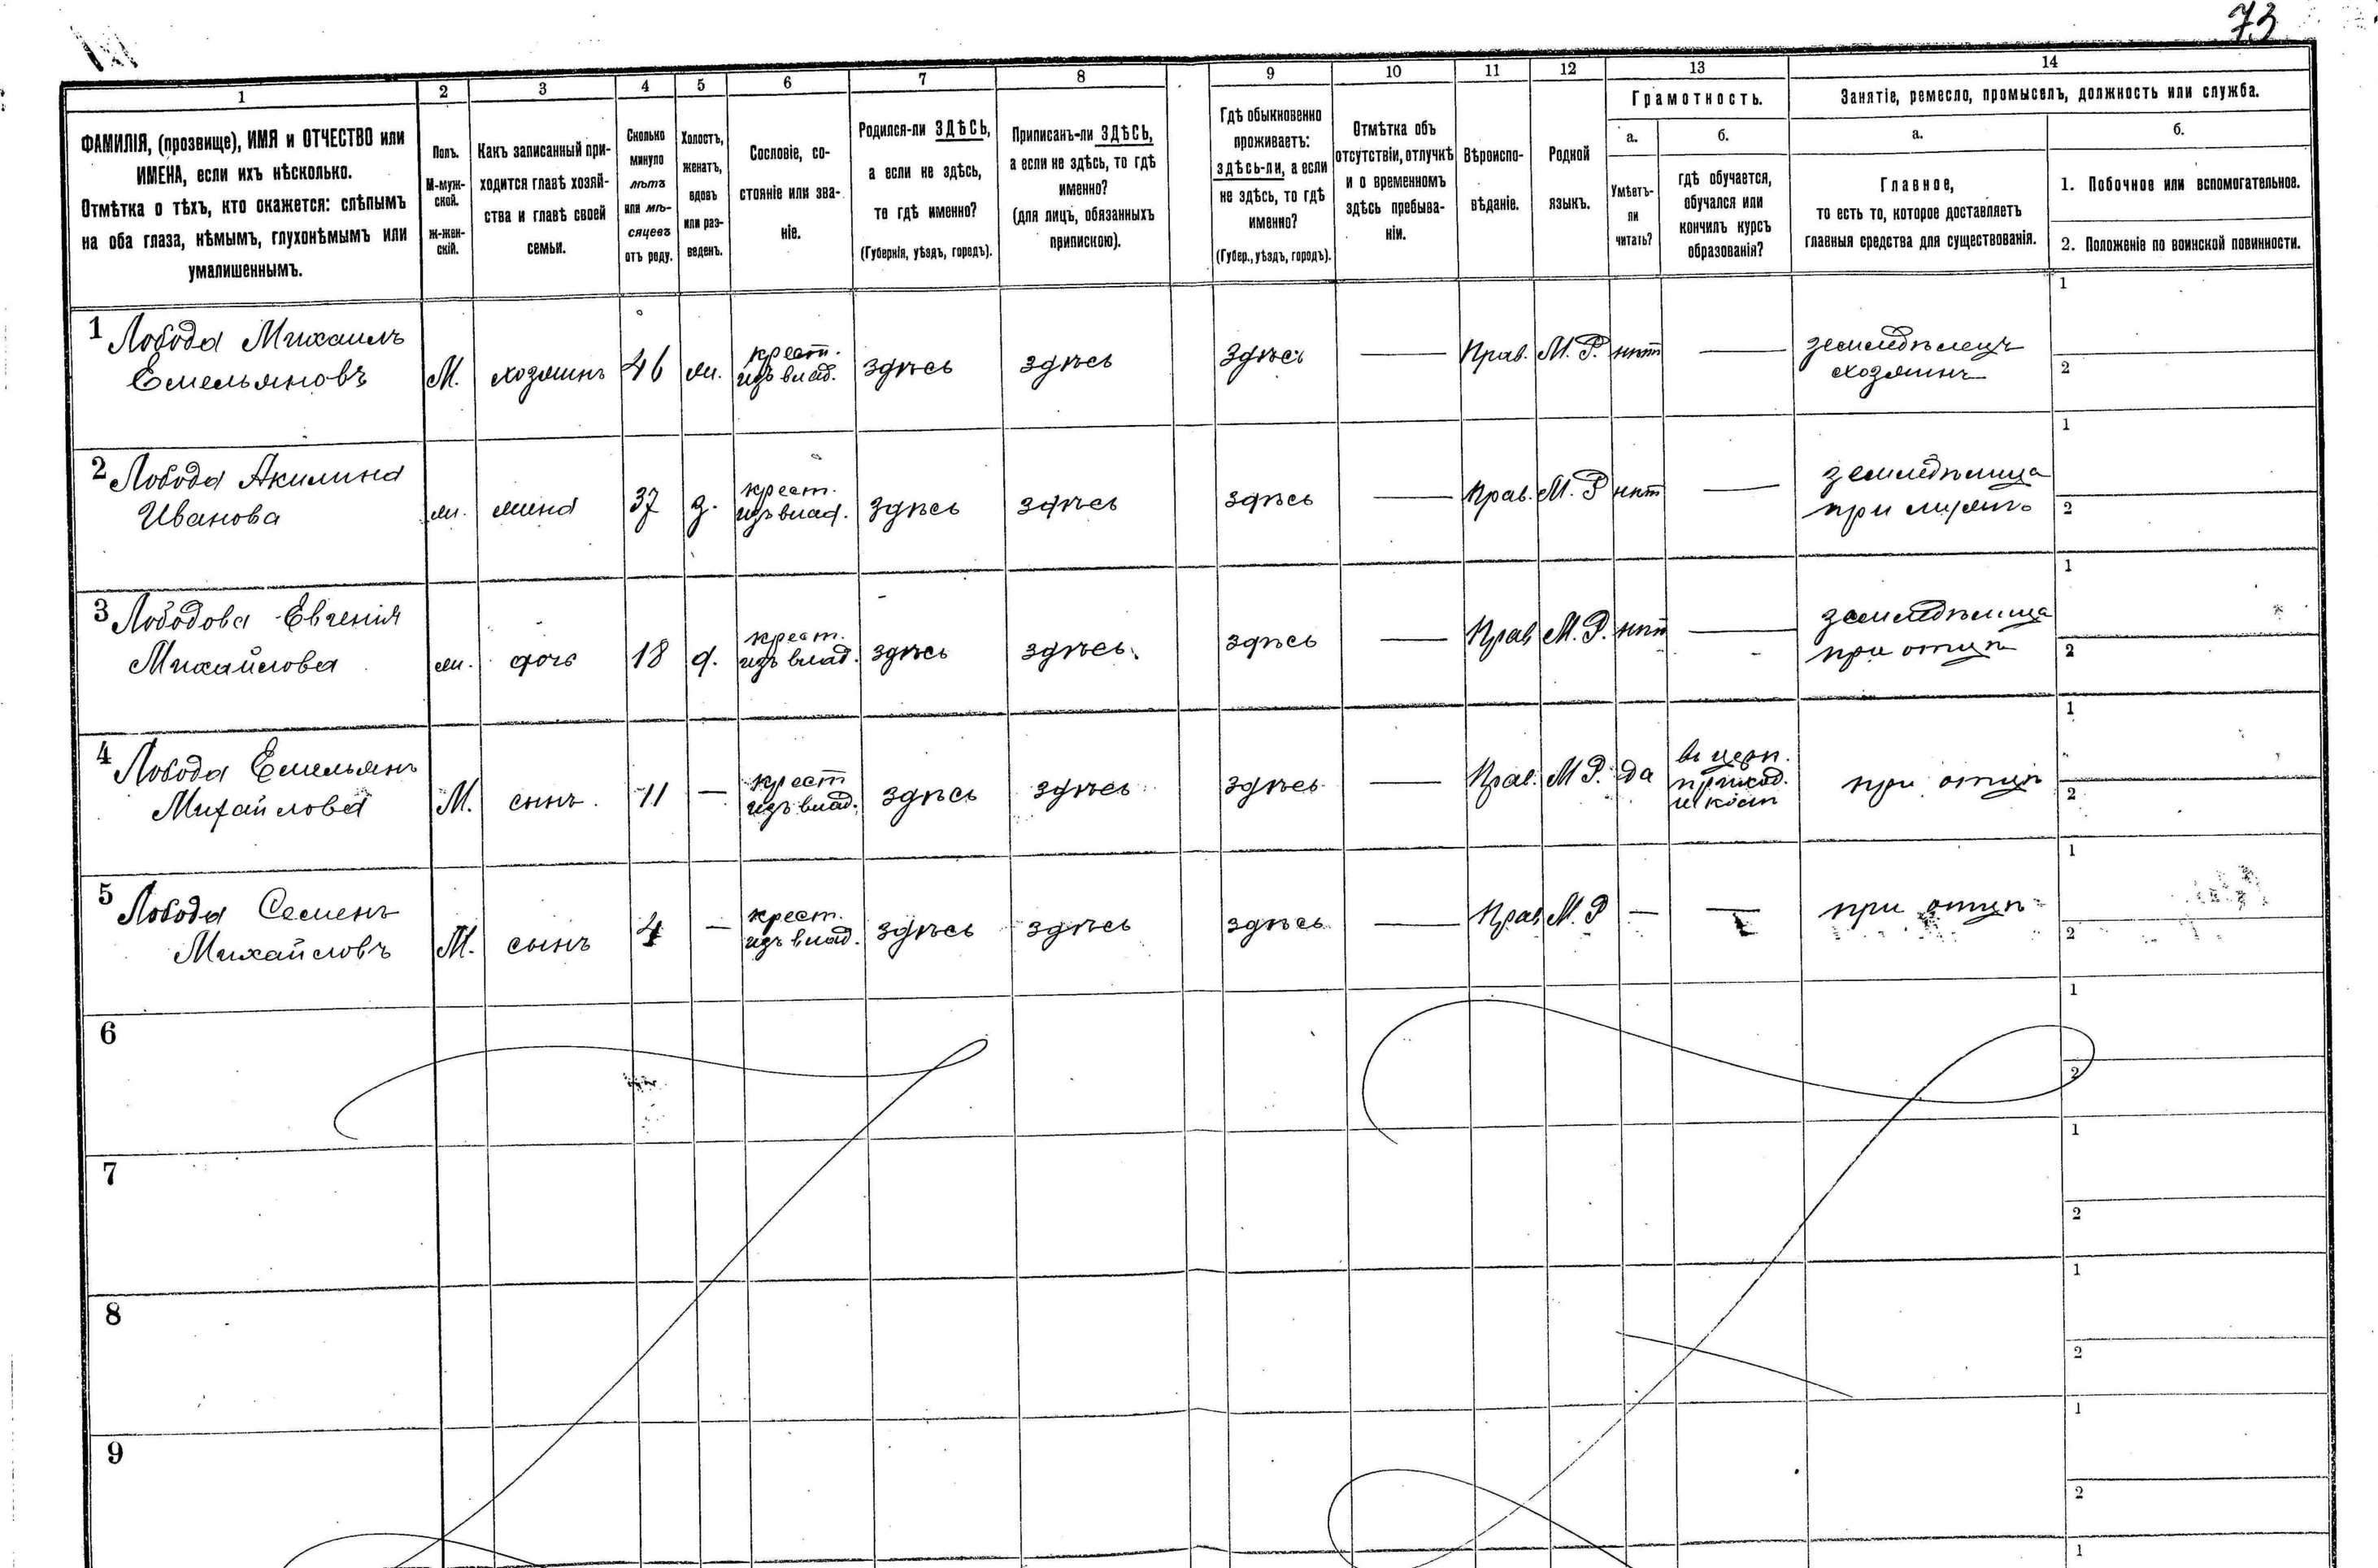 73
1 2 3 4 5 6 7 8 9 10 11 12 13 14
ФАМИЛІЯ, (прозвище), ИМЯ и ОТЧЕСТВО или
ИМЕНА, если ихъ нѣсколько.
Отмѣтка о тѣхъ, кто окажется: слѣпымъ
на оба глаза, нѣмымъ, глухонѣмымъ или
умалишеннымъ.
Полъ.
М-муж-
ской.
Ж-жен-
скій.
Какъ записанный при-
ходится главѣ хозяй-
ства и главѣ своей
семьи.
Сколько
минуло
лѣтъ
или мѣ-
сяцевъ
отъ роду.
Холостъ,
женатъ,
вдовъ
или раз-
веденъ.
Сословіе, со-
стояніе или зва-
ніе.
Родился-ли ЗДѢСЬ,
а если не здѣсь,
то гдѣ именно?
(Губернія, уѣздъ, городъ).
Приписанъ-ли ЗДѢСЬ,
а если не здѣсь, то гдѣ
именно?
(для лицъ, обязанныхъ
припискою).
Гдѣ обыкновенно
проживаетъ:
здѣсь-ли, а если
не здѣсь, то гдѣ
именно?
(Губер., уѣздъ, городъ).
Отмѣтка объ
отсутствіи, отлучкѣ
и о временномъ
здѣсь пребыва-
ніи.
Вѣроиспо-
вѣданіе.
Родной
языкъ.
Грамотность.
а.
Умѣетъ-
ли
читать?
б.
гдѣ обучается,
обучался или
кончилъ курсъ
образованія?
Занятіе, ремесло, промыселъ, должность или служба.
а.
Главное,
то есть то, которое доставляетъ
главныя средства для существованія.
б.
1. Побочное или вспомогательное.
2. Положеніе по воинской повинности.
1 Лобода Михаилъ
Емельяновъ
М.
хозяинъ
46
ж.
крест.
изъ влад.
здѣсь
здѣсь
здѣсь
—
Прав.
М. Р.
нѣт
—
земледѣлецъ
хозяинъ
1
2
2 Лобода Акилина
Иванова
ж.
жена
37
з.
крест.
изъ влад.
здѣсь
здѣсь
здѣсь
—
Прав.
М. Р
нѣт
—
земледѣлица
при
1
2
3 Лободова Евгенія
Михайлова
ж.
дочь
18
д.
крест.
изъ влад.
здѣсь
здѣсь.
здѣсь
—
Прав
М. Р.
нѣт
—
земледѣлица
при отцѣ
1
2
4 Лобода Емельянъ
Михайлова
М.
сынъ.
11
—
крест
изъ влад.
здѣсь
здѣсь
здѣсь
—
Прав.
М Р.
да
въ церк.
приход.
при отцѣ
1
2
5 Лобода Семенъ
Михайловъ
М.
сынъ
4
—
крест.
изъ влад.
здѣсь
здѣсь
здѣсь
—
Прав
М. Р
—
—
при отцѣ
1
2
6
1
2
7
1
2
8
1
2
9
1
2
1